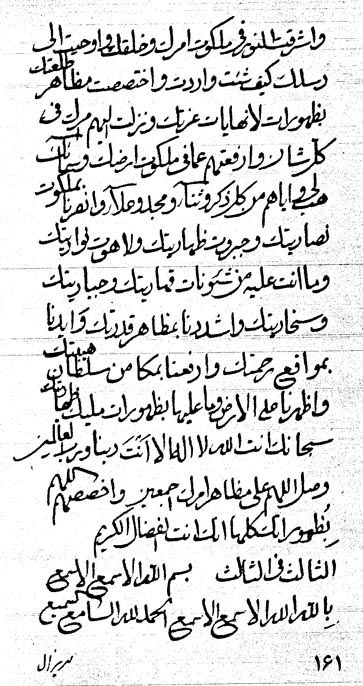 واشرقت النور فى ملكوت امرك وخلقك واوحيت الى
رسلك كيف شئت واردت واختصصت مظاهر طلعتك
بظهورات لانهايات عزتك ونزلت اليهم امرك فى
كل شان وارفعتهم عما فى ملكوت ارضك وسمائك
هب لى واياهم من كل ذكر وثناء ومجد وعلاء وانصرنا بملكوت
نصاريتك وجبروت ظهاريتك ولاهوت
وما انت عليه من شئونات قهاريتك وجباريتك
وسخاريتك واشددنا بمظاهر قدرتك وايدنا
بمواقع رحمتك وارفعنا بمكامن سلطان هيبتك
واظهرنا على الارض وما عليها بظهورات مليك
سبحانك انت الله لا اله الا انت ربنا ورب العالمين
وصل اللهم على مظاهر امرك اجمعين واخصصهم اللهم
بظهوراتك كلها انك انت الفضال الكريم
الثالث فى الثالث بسم الله الاسمع الاسمع
بالله الله الاسمع الاسمع الحمد لله السامع السميع
١۶١